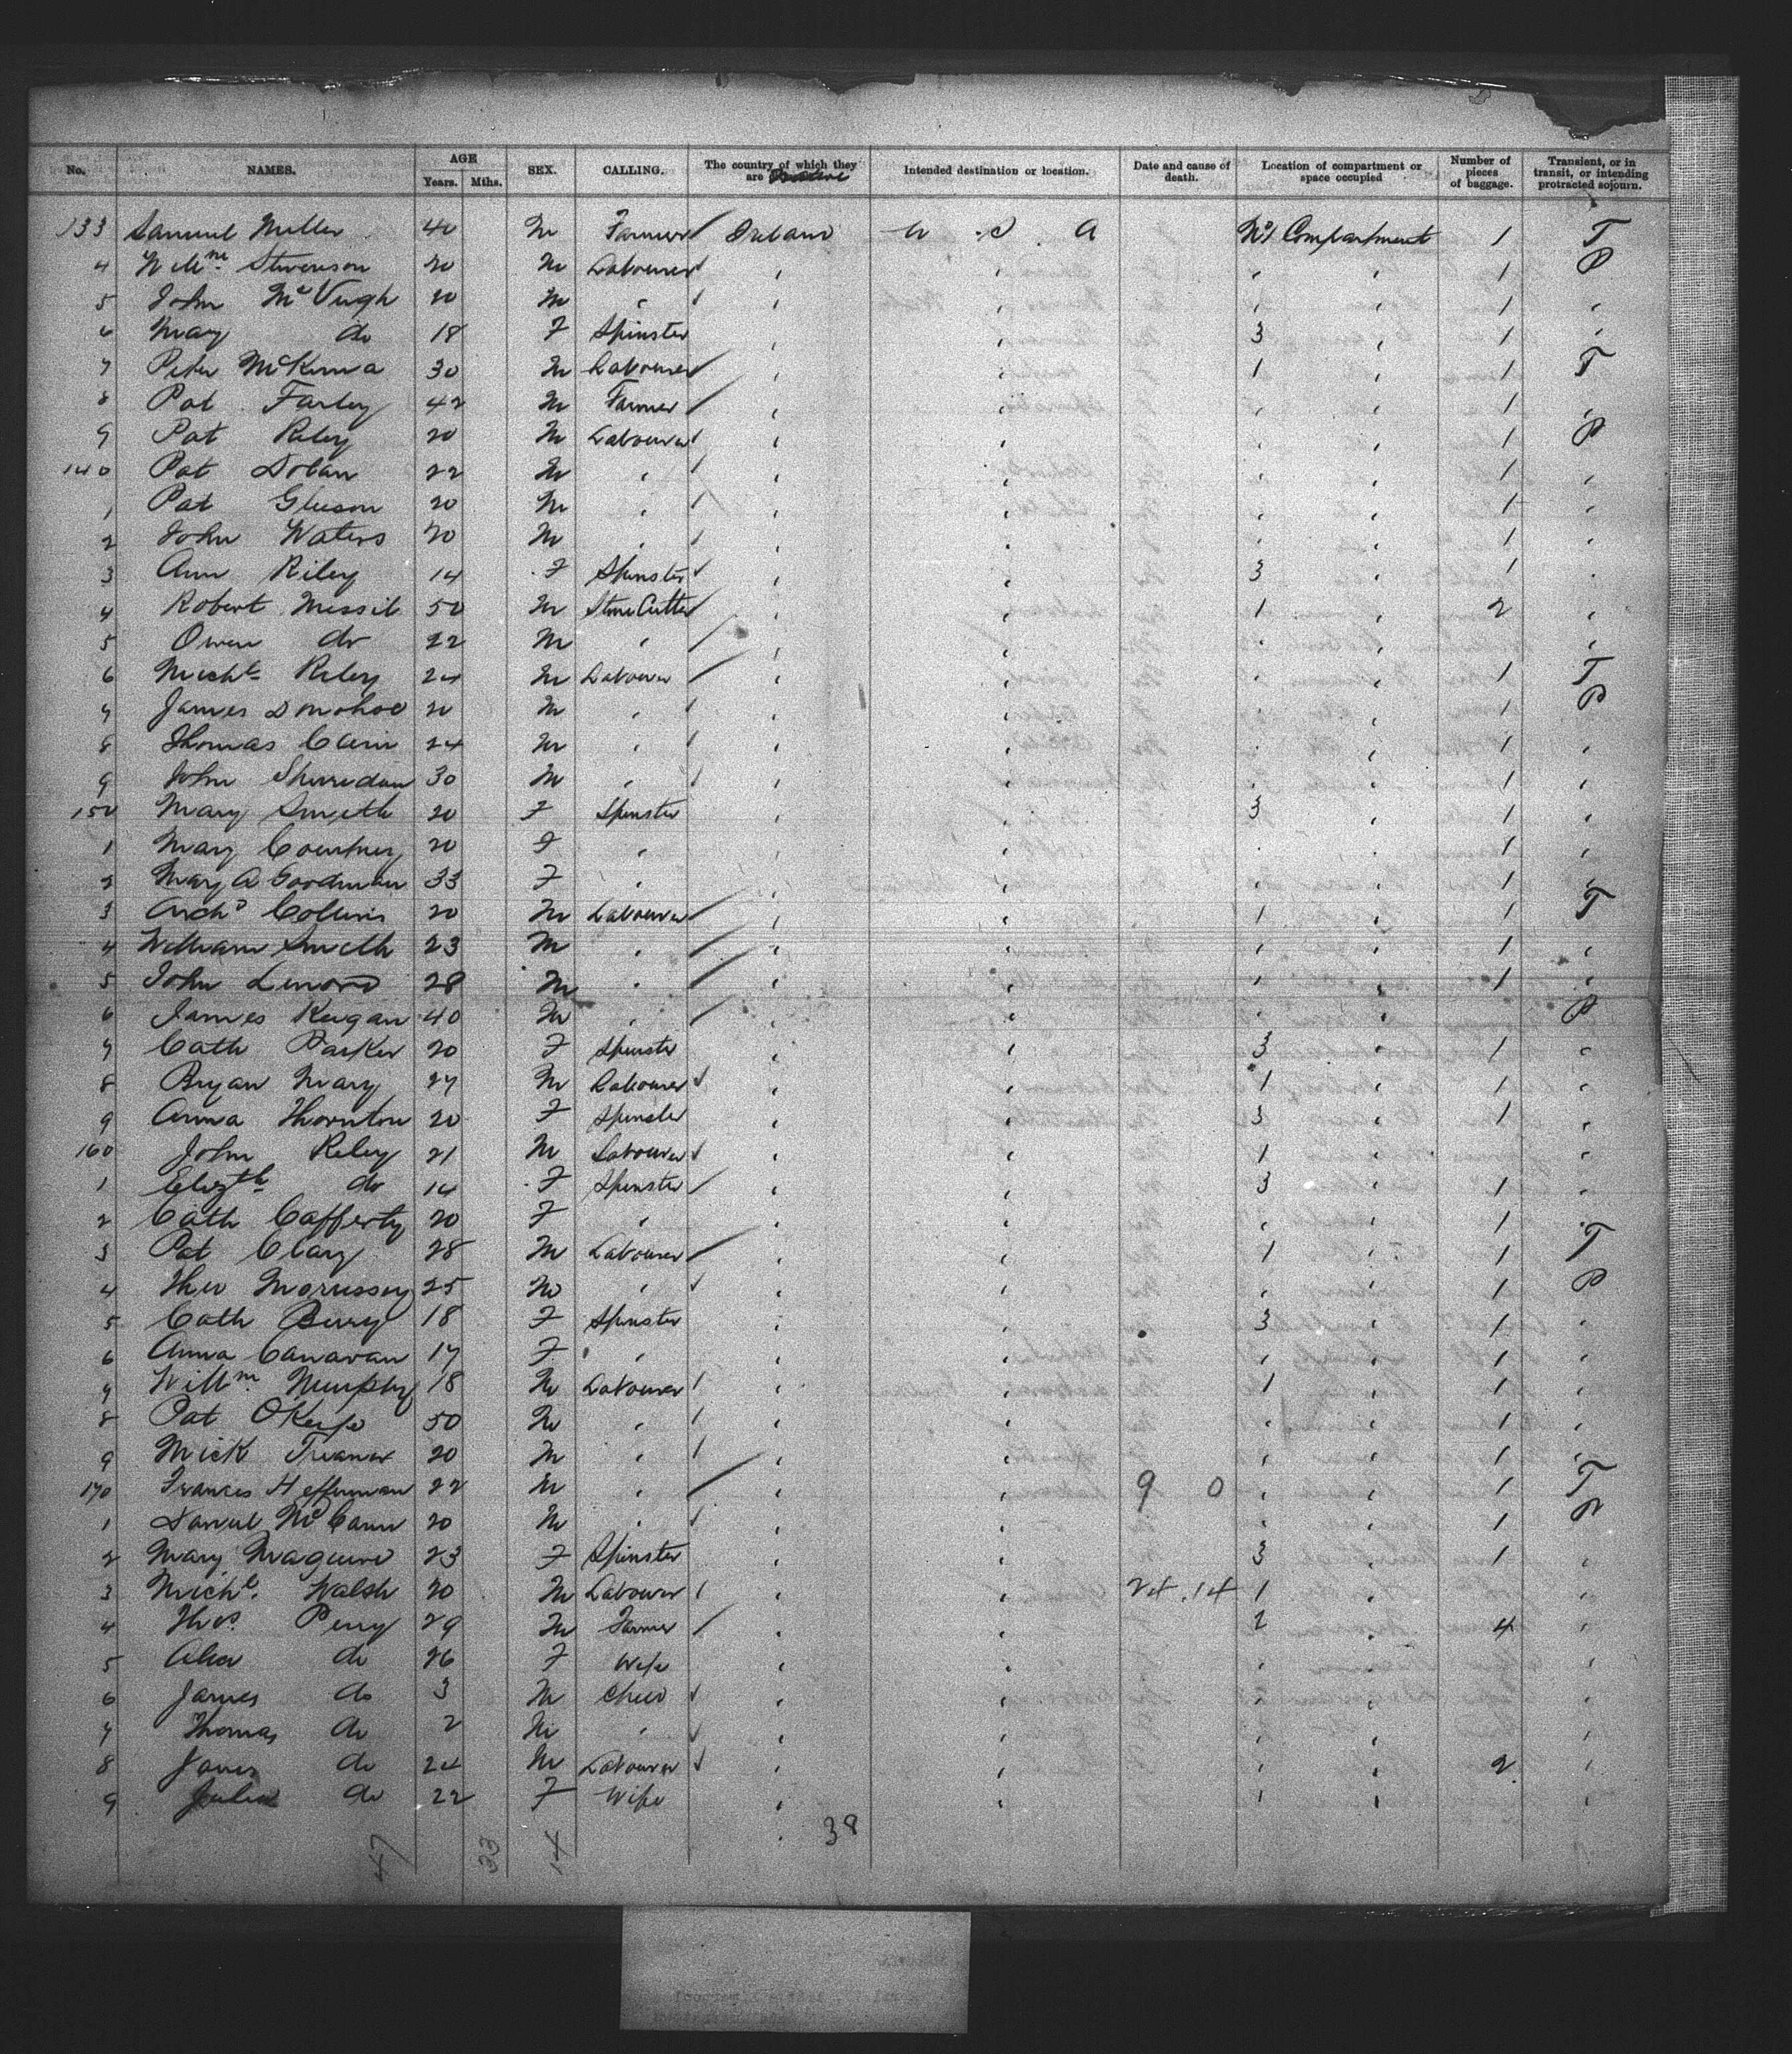 No. NAMES. AGE Years. Mths. SEX. CALLING. The country of which they are Native Intended destination or location. Date and cause of death. Location of compartment or space occupied Number of pieces of baggage. Transient, or in transit, or intending protracted sojourn.
133 Samuel Miller 40 M Farmer Ireland U S A No 1 Compartment 1 T
4 Willm Stevenson 20 M Labourer 1 P
5 John McVeigh 20 M " 1 "
6 Mary do 18 F Spinster 3 " 1 "
7 Peter McKenna 30 M Labourer 1 " 1 T
8 Pat Farley 42 M Farmer 1 "
9 Pat Riley 20 M Labourer 1 P
140 Pat Dolan 22 M " 1 "
1 Pat Gleeson 20 M " 1 "
2 John Waters 20 M " 1 "
3 Ann Riley 14 F Spinster 3 " 1 "
4 Robert 50 M Stone Cutter 1 " 2 "
5 Owen do 22 M " "
6 Michl Riley 24 M Labourer 1 T
7 James Donohoe 20 M " 1 P
8 Thomas 24 M " 1 "
9 John Sherredan 30 M " 1 "
150 Mary Smith 20 F Spinster 3 " 1 "
1 Mary Courtney 20 F " 1 "
2 Mary A Goodman 33 F " 1 "
3 Archd Collins 20 M Labourer 1 " 1 T
4 William Smith 23 M " 1 "
5 John Lenord 28 M " 1 "
6 James Keegan 40 M " P
7 Cath Parker 20 F Spinster 3 " 1 "
8 Bryan Mary 27 M Labourer 1 " 1 "
9 Anna Thornton 20 F Spinster 3 " 1 "
160 John Riley 21 M Labourer 1 " "
1 Elizth do 14 F Spinster 3 " 1 "
2 Cath Cafferty 20 F " 1 "
3 Pat Clary 28 M Labourer 1 " 1 T
4 Morrissey 25 M " 1 P
5 Cath 18 F Spinster 3 " 1 "
6 Anna Canavan 17 F " 1 "
7 Willm Murphy 18 M Labourer 1 " 1 "
8 Pat OKeefe 50 M " 1 "
9 Mick Treanor 20 M " 1 "
170 Frances Heffernan 22 M " 9 0 1 T
1 Daniel McCann 20 M " 1 P
2 Mary Maguire 23 F Spinster 3 " 1 "
3 Michl. Walsh 20 M Labourer 24 . 14 1 "
4 Thos. Perry 29 M Farmer 2 " 4 "
5 do 26 F Wife "
6 James do 3 M Child "
7 Thomas do 2 M " "
8 James do 24 M Labourer 2 "
9 Julia do 22 F Wife "
38
47 33 14